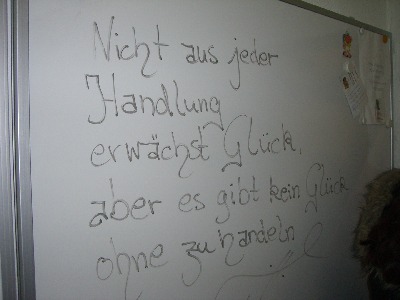 Nicht aus jeder
Handlung
erwächst Glück,
aber es gibt kein Glück
ohne zu handeln